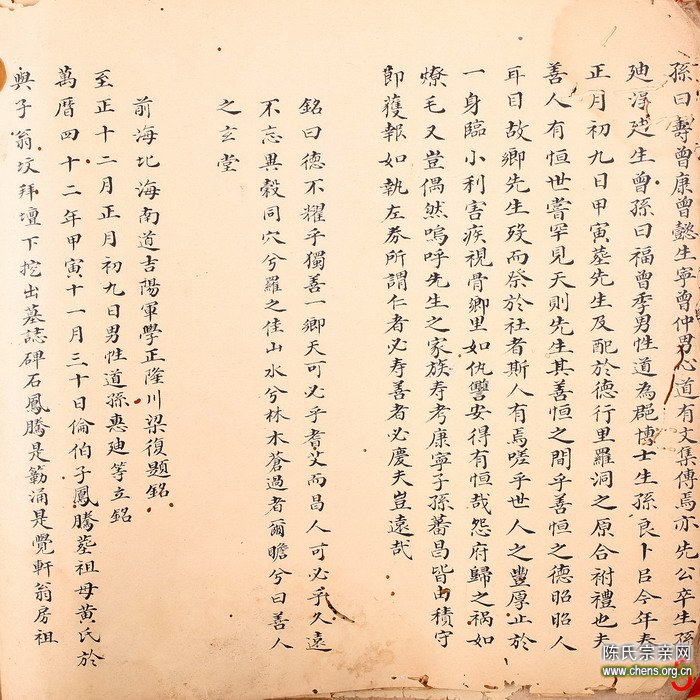 孫曰壽曾康曾懿生寧曾仲男心道有文集傳焉亦先公卒生孫
廸淂廷生曾孫曰福曾季男性道為郡博士生孫良卜㠯今年春
正月初九日甲寅塟先生及配於德行里羅洞之原合祔禮也夫
善人有恒世嘗罕見天則先生其善恒之間乎善恒之德昭昭人
耳目故鄉先生歿而祭於社者斯人有焉嗟乎世人之豐厚止於
一身臨小利害疾視骨鄉里如仇讐安得有恒哉怨府歸之禍如
燎毛又豈偶然嗚呼先生之家族寿考康寧子孫蕃昌皆由積守
即獲報如執左券所謂仁者必寿善者必慶夫豈遠哉
銘曰德不耀乎獨善一鄉天可必乎耆艾而昌人可必乎久遠
不忘異穀同穴兮羅之佳山水兮林木蒼過者爾瞻兮曰善人
之玄堂
前海北海南道吉陽軍學正隆川梁復題銘
至正十二月正月初九日男性道孫惠廸等立銘
萬曆四十二年甲寅十一月三十日倫伯子鳳騰塟祖母黄氏於
與子翁坟拜壇下挖出墓誌碑石鳳騰是簕涌是覺軒翁房祖
陈氏宗亲网
www.chens.org.cn